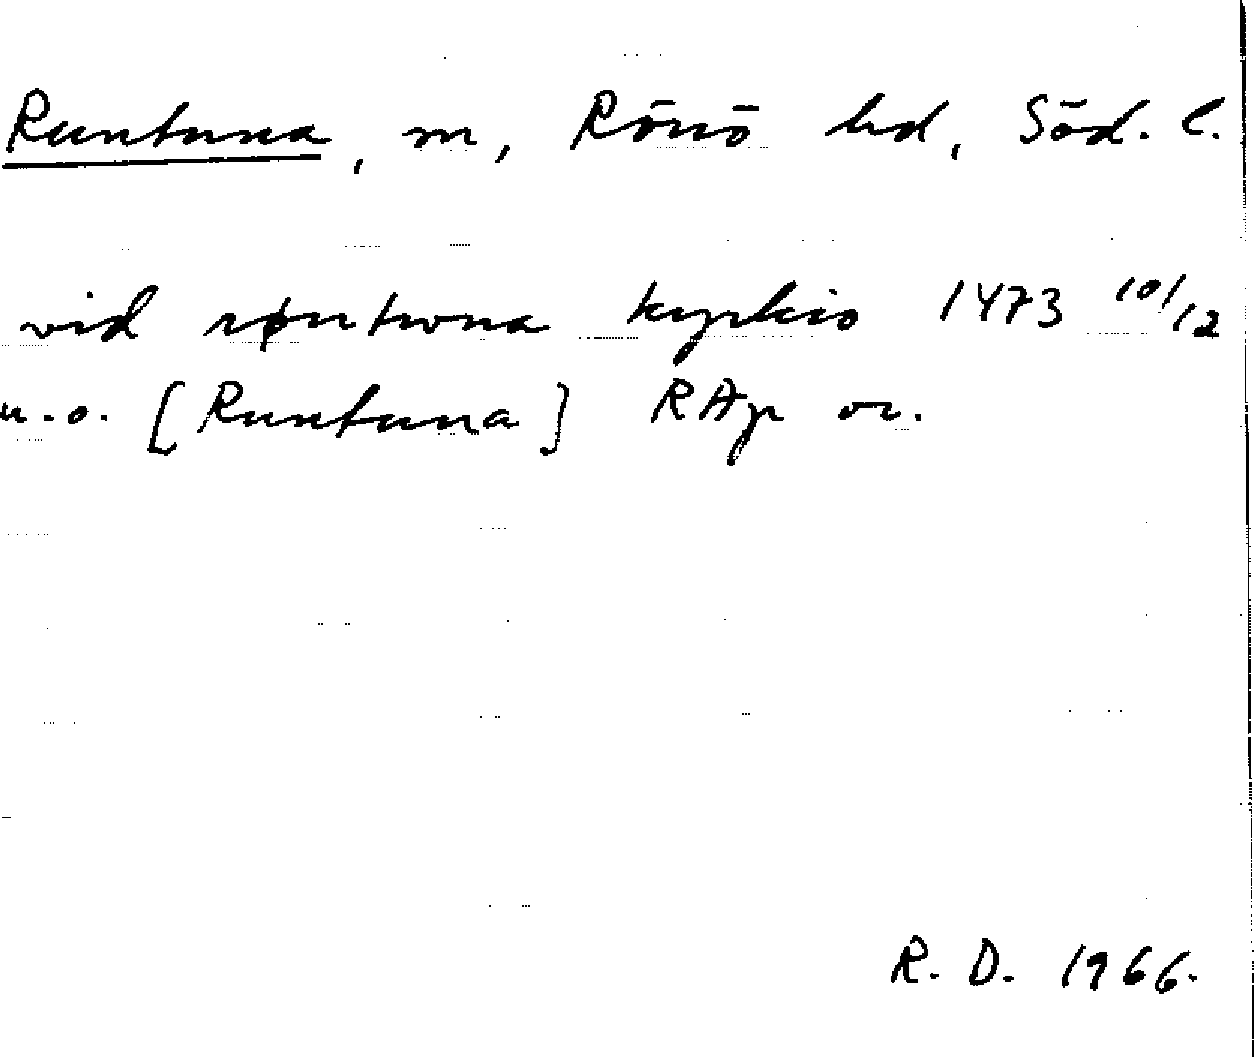 Runtuna, sn, Rönö hd, Söd. l.
vid røntwna kyrkio 1473 10/12
u.o. [Runtuna] RAp or.
R. D. 1966.